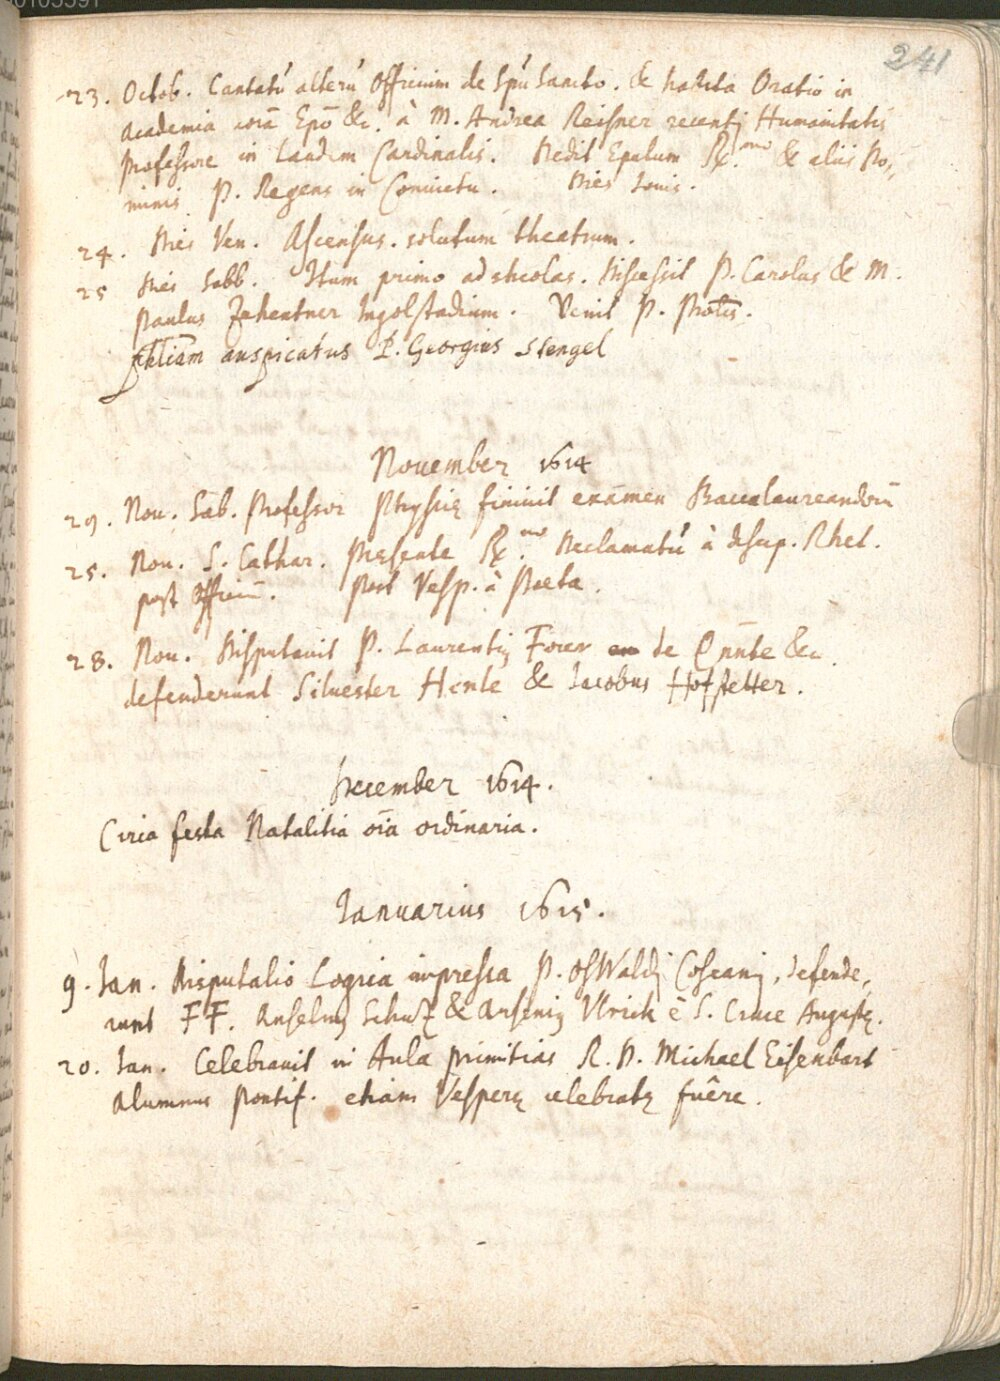 241
23. Octob. Cantatũ alterũ Officium de Spũ Sancto. & habita Oratio in
Academia corã Epõ &c. à M. Andrea Reisner recentj Humanitatis
Professore in Laudem Cardinalis. Dedit Epulum Rx.mo & aliis Do„
minis P. Regens in Convictu. Dies Iouis.
24. Dies Ven. Ascensus. solutum theatrum.
25 Dies Sabb. Itum primo ad scholas. Discessit P. Carolus & M.
Paulus Zehentner Ingolstadium. Venit P. Prõlis.
auspicatus P. Georgius Stengel
November 1614
29. Nou. Sab. Professor Physicę finiuit exámen Baccalaureandorũ
25. Nou. S. Cathar. Presente Rx.mo Declamatũ à discip. Rhet.
post Officiũ. Post Vesp. à Poeta.
28. Nou. Disputauit P. Laurentiꝰ Forer de &c.
defenderunt Siluester Henle & Iacobus Hofstetter.
December 1614.
Circa festa Natalitia oĩa ordinaria.
Ianuarius 1615.
9. Jan. Disputatio Logica impressa P. OsWaldj Coscanj, defende„
runt FF. Anselmꝰ Schuz & Arseniꝰ Vlrick è S. Cruce Augustę.
20. Jan. Celebrauit in Aula primitias R. D. Michael Eisenbart
Alumnus Pontif. etiam Vesperę celebratę fuêre.